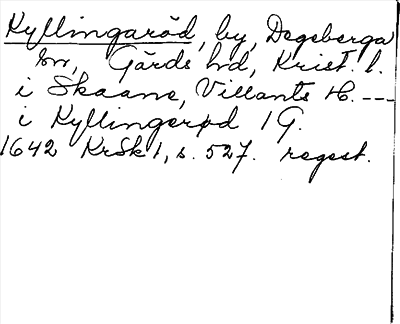 Kyllingaröd, by, Degeberga
sn, Gärds hd, Krist. l.
i Skaane, Villants H. ---
i Kyllingerød 1 G.
1642 KrSk 1, s. 527. regest.